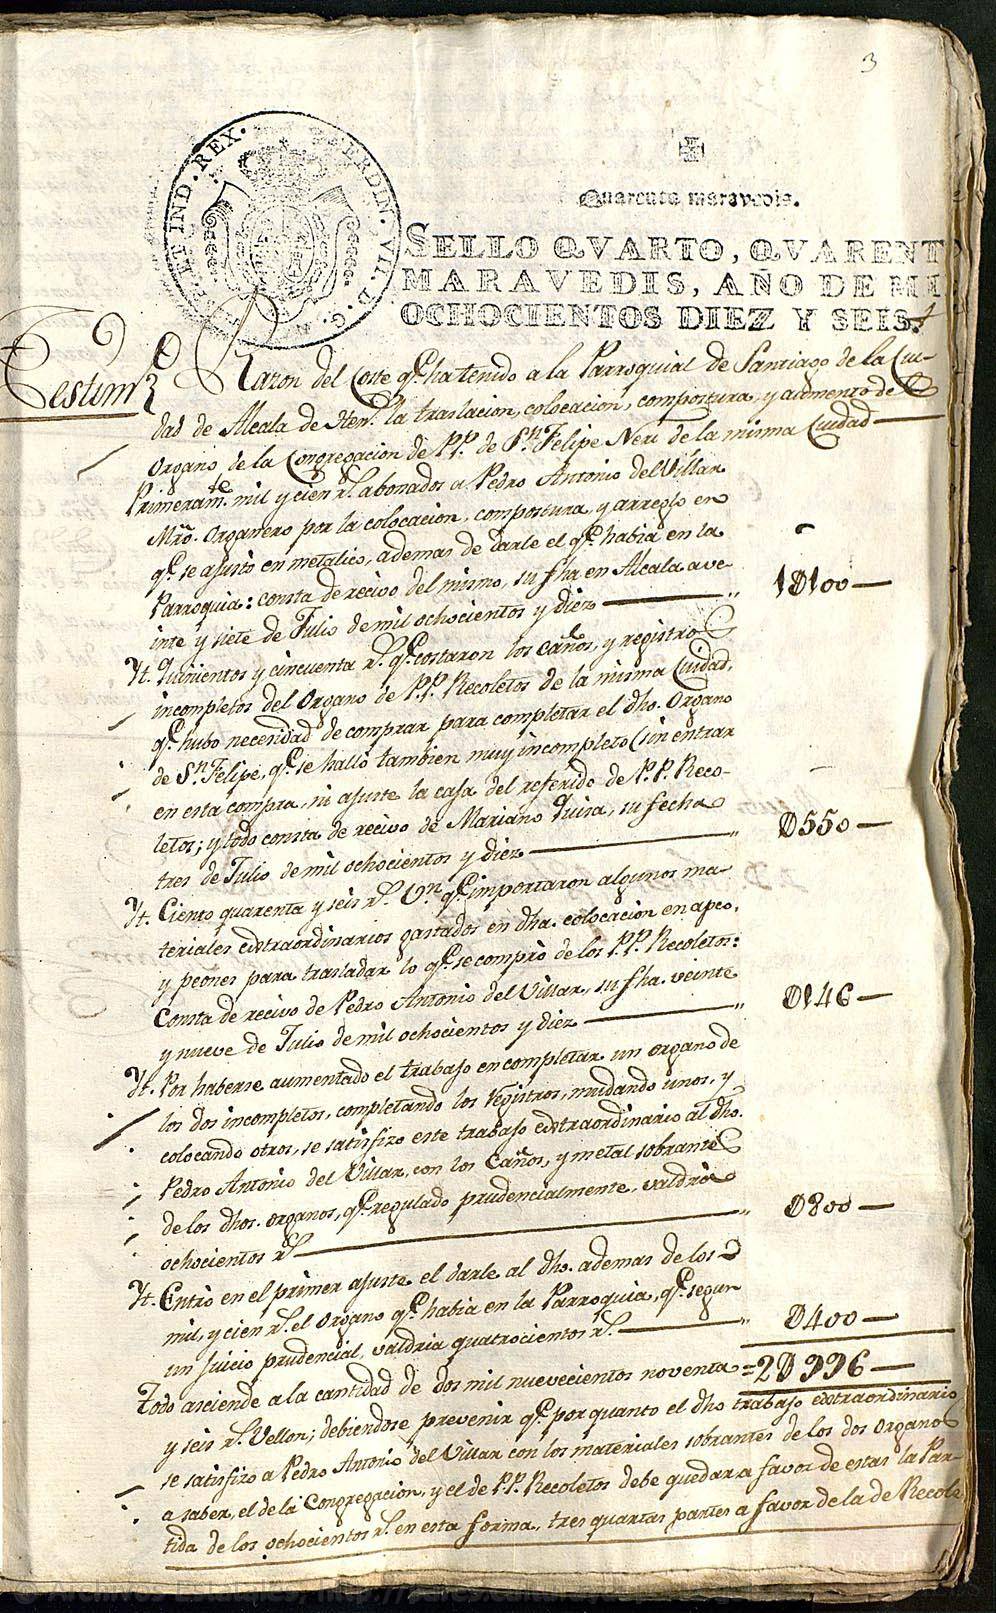 3
FERDIN. VII. D. G. HISP. ET IND. REX.
Quarenta maravedis.
SELLO QVARTO, QVARENT
MARAVEDIS, AÑO DE MI
OCHOCIENTOS DIEZ Y SEIS.
Testimº
Razon del Coste qᵉ ha tenido a la Parroquial de Santiago de la Ciu-
dad de Alcala de Henˢ. la traslacion, colocacion, compostura, y aumento de el
Organo de la Congregacion de P.P. de Sⁿ Felipe Neri de la misma Ciudad
Primeramᵗᵉ. mil y cien rˢ. abonados a Pedro Antonio del Villar
Mrō. Organero por la colocacion, compostura, y arreglo en
qᵉ. se ajustó en metalico, ademas de darle el qᵉ. habia en la
Parroquia: consta de recivo del mismo, su fha en Alcala a ve-
inte y siete de Julio de mil ochocientos y diez 1D100
Yt. Quinientos y cincuenta rˢ. qᵉ costaron los caños, y registro
incompletos del Organo de P.P. Recoletos de la misma Ciudad,
qᵉ. hubo necesidad de comprar para completar el dho. Organo
de Sⁿ. Felipe, qᵉ. se halló tambien muy incompleto (sin entrar
en esta compra, ni ajuste la caja del referido de P.P. Reco-
letos; y todo consta de recivo de Mariano Quisa, su fecha
tres de Julio de mil ochocientos y diez D550
Yt. Ciento quarenta y seis rˢ. Vⁿ. qᵉ. importaron algunos ma-
teriales extraordinarios gastados en dha. colocacion en apeo,
y peones para trasladar lo qᵉ. se compró de los P.P. Recoletos:
Consta de recivo de Pedro Antonio del Villar, su fha. veinte
y nueve de Julio de mil ochocientos y diez D146
Yt. Por haberse aumentado el trabajo en completar un organo de
los dos incompletos, completando los registros, mudando unos, y
colocando otros, se satisfizo este trabajo extraordinario al dho.
Pedro Antonio del Villar, con los caños, y metal sobrante
de los dhos. organos, qᵉ. regulado prudencialmente, valdria
ochocientos rˢ. D800
Yt. Entró en el primer ajuste el darle al dho. ademas de los
mil, y cien rˢ. el Organo qᵉ. habia en la Parroquia, qᵉ. segun
un juicio prudencial, valdria quatrocientos rˢ. D400
Todo asciende a la cantidad de dos mil nuevecientos noventa =2D996
y seis rˢ. Vellon; debiendose prevenir qᵉ. por quanto el dho trabajo extraordinario
se satisfizo a Pedro Antonio del Villar con los materiales sobrantes de los dos Organos
a saber, el de la Congregacion, y el de P.P. Recoletos debe quedar a favor de estas la Par-
tida de los ochocientos rˢ. en esta forma, tres quartas partes a favor de la de Recole